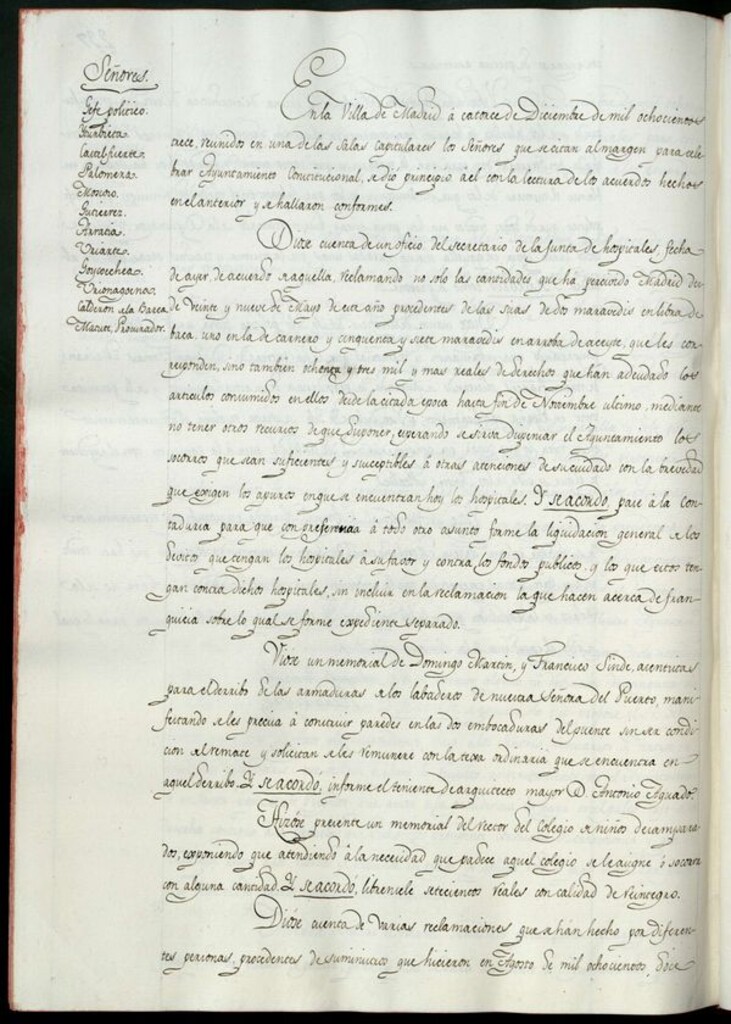 Señores.
Gefe politico.
Yturbieta.
Castelfuerte.
Palomera.
Moscoso.
Gutierrez.
Arratia.
Uriarte.
Goycoechea.
Urionagoena.
Calderon de la Barca.
Matute, Procurador.
En la Villa de Madrid á catorce de Diciembre de mil ochocientos
trece, reunidos en una de las Salas capitulares los Señores que se citan al margen para cele-
brar Ayuntamiento Constitucional, se dió principio á el con la lectura de los acuerdos hechos
en el anterior y se hallaron conformes.
Diose cuenta de un oficio del secretario de la Junta de hospitales, fecha
de ayer, de acuerdo de aquella, reclamando no solo las cantidades que ha percivido Madrid des-
de veinte y nueve de Mayo de este año procedentes de las sisas de dos maravedis en libra de
baca, uno en la de carnero y cinquenta y siete maravedis en arroba de aceyte, que les cor-
responden, sino tambien ochenta y tres mil y mas reales de derechos que han adeudado los
articulos consumidos en ellos desde la citada epoca hasta fin de Noviembre ultimo, mediante
no tener otros recursos de que disponer, esperando se sirva dispensar el Ayuntamiento los
socorros que sean suficientes y susceptibles á otras atenciones de su cuidado con la brevedad
que exigen los apuros en que se encuentran hoy los hospitales. Y se acordó, pase á la Con-
taduria para que con preferencia á todo otro asunto forme la liquidacion general de los
devitos que tengan los hospitales á su favor y contra los fondos publicos, y los que estos ten-
gan contra dichos hospitales, sin incluir en la reclamacion la que hacen acerca de fran-
quicia sobre lo qual se forme expediente separado.
Viose un memorial de Domingo Martin, y Francisco Sinde, asentistas
para el derribo de las armaduras de los labaderos de nuestra Señora del Puerto, mani-
festando se les precisa á construir paredes en las dos embocaduras del puente sin ser condi-
cion del remate y solicitan se les remunere con la texa ordinaria que se encuentra en
aquel derribo. Y se acordó, informe el teniente de arquitecto mayor D. Antonio Aguado.
Hizose presente un memorial del rector del Colegio de niños desampara-
dos, exponiendo que atendiendo á la necesidad que padece aquel colegio se le asigne ó socorra
con alguna cantidad. Y se acordó, librensele setecientos reales con calidad de reintegro.
Diose cuenta de varias reclamaciones que se han hecho por diferen-
tes personas, procedentes de suministros que hicieron en Agosto de mil ochocientos doce